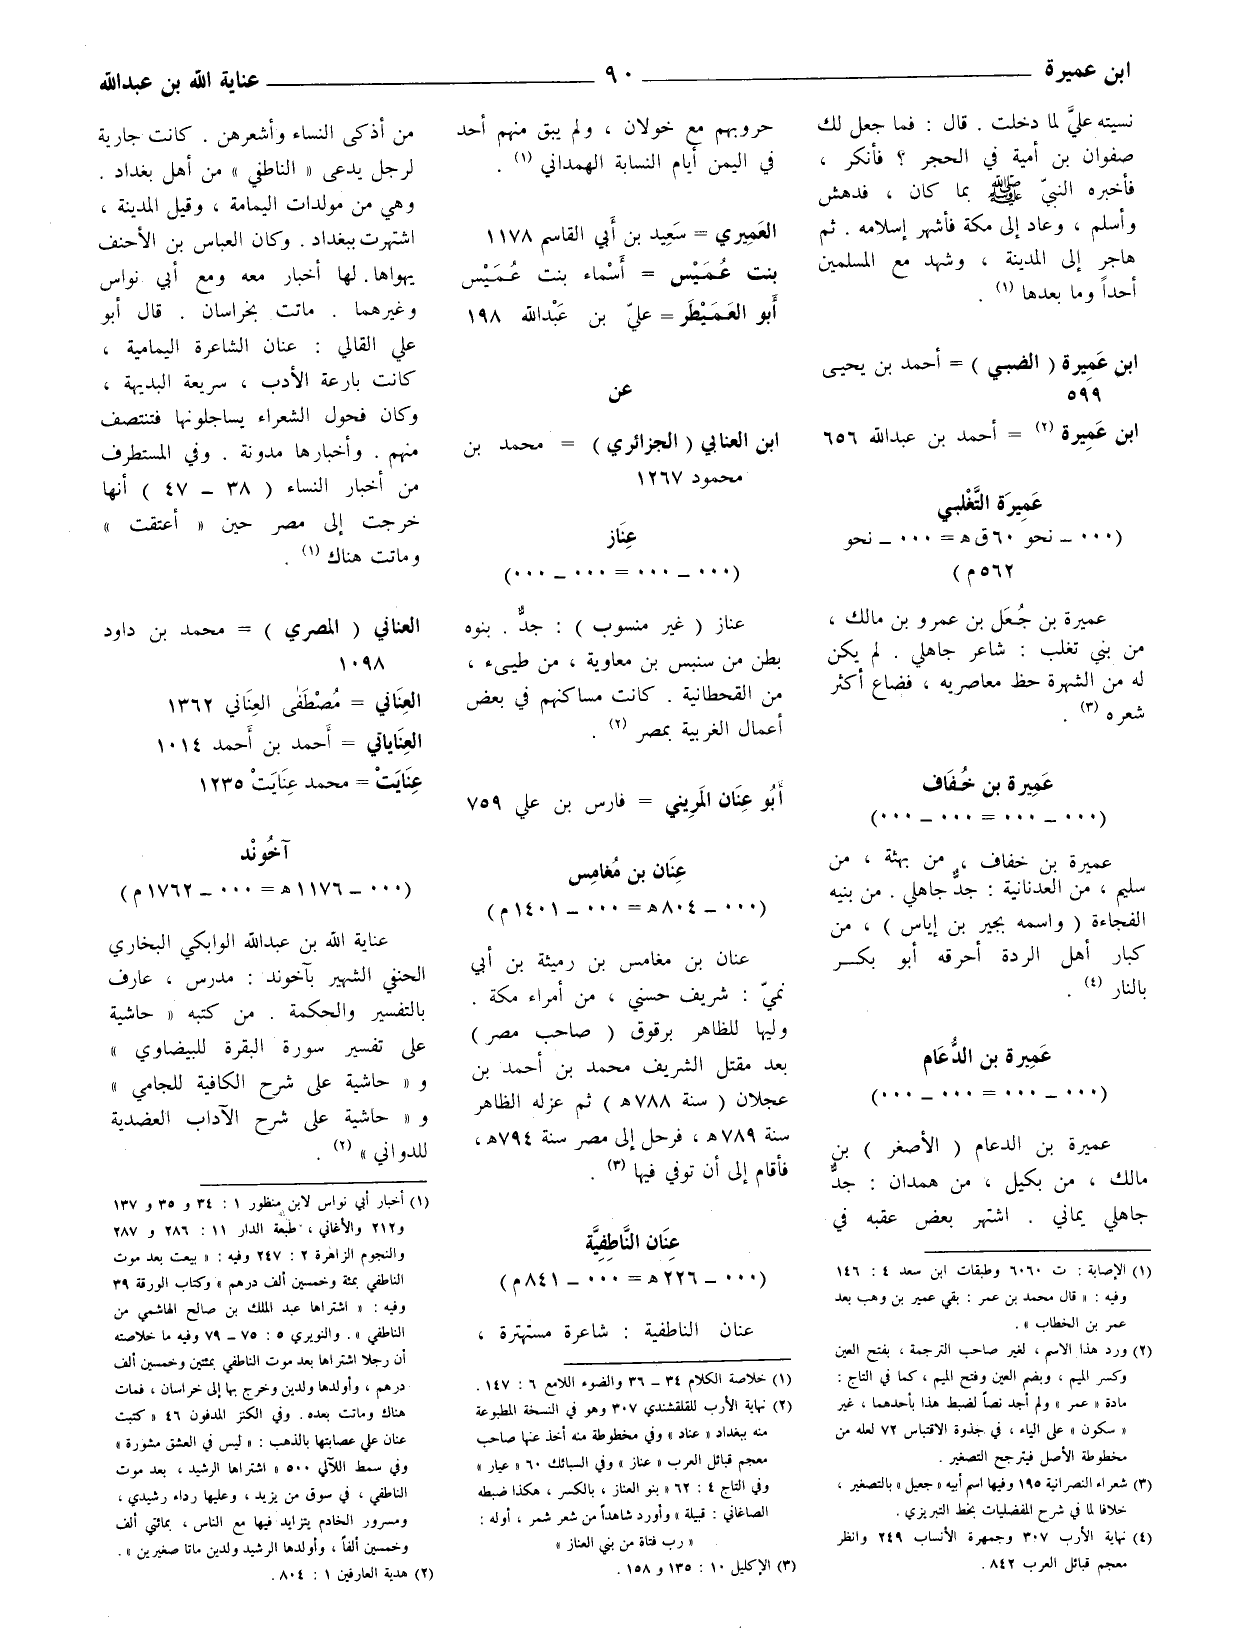 ابن عميرة
٩٠
عناية الله بن عبدالله
نسيته عليَّ لما دخلت . قال : فما جعل لك
صفوان بن أمية في الحجر ؟ فأنكر ،
فأخبره النبيّ ﷺ بما كان ، فدهش
وأسلم ، وعاد إلى مكة فأشهر إسلامه . ثم
هاجر إلى المدينة ، وشهد مع المسلمين
أحداً وما بعدها (١) .
ابن عَمِيرة ( الضبي ) = أحمد بن يحيى
٥٩٩
ابن عَمِيرة (٢) = أحمد بن عبدالله ٦٥٦
عَمِيرَة التَّغْلبي
(٠٠٠ ـ نحو ٦٠ق ه = ٠٠٠ ـ نحو
٥٦٢م)
عميرة بن جُعَل بن عمرو بن مالك ،
من بني تغلب : شاعر جاهلي . لم يكن
له من الشهرة حظ معاصريه ، فضاع أكثر
شعره (٣) .
عَمِيرة بن خُفَاف
(٠٠٠ ـ ٠٠٠ = ٠٠٠ ـ ٠٠٠)
عميرة بن خفاف ، من بهثة ، من
سليم ، من العدنانية : جدٌّ جاهلي . من بنيه
الفجاءة ( واسمه بجير بن إياس ) ، من
كبار أهل الردة أحرقه أبو بكـــر
بالنار (٤) .
عَمِيرة بن الدُّعَام
(٠٠٠ ـ ٠٠٠ = ٠٠٠ ـ ٠٠٠)
عميرة بن الدعام ( الأصغر ) بن
مالك ، من بكيل ، من همدان : جدٌّ
جاهلي يماني . اشتهر بعض عقبه في
(١) الإصابة : ت ٦٠٦٠ وطبقات ابن سعد ٤ : ١٤٦
وفيه : « قال محمد بن عمر : بقي عمير بن وهب بعد
عمر بن الخطاب » .
(٢) ورد هذا الاسم ، لغير صاحب الترجمة ، بفتح العين
وكسر الميم ، وبضم العين وفتح الميم ، كما في التاج :
مادة « عمر » ولم أجد نصاً لضبط هذا بأحدهما ، غير
« سكون » على الياء ، في جذوة الاقتباس ٧٢ لعله من
مخطوطة الأصل فيترجح التصغير .
(٣) شعراء النصرانية ١٩٥ وفيها اسم أبيه « جعيل » بالتصغير ،
خلافا لما في شرح المفضليات بخط التبريزي .
(٤) نهاية الأرب ٣٠٧ وجمهرة الأنساب ٢٤٩ وانظر
معجم قبائل العرب ٨٤٢ .
حروبهم مع خولان ، ولم يبق منهم أحد
في اليمن أيام النسابة الهمداني (١) .
العَمِيري = سَعِيد بن أَبي القاسم ١١٧٨
بنت عُـمَيْس = أَسْماء بنت عُـمَيْس
أَبو العَمَيْطَر = عليّ بن عَبْدالله ١٩٨
عن
ابن العنابي ( الجزائري ) = محمد بن
محمود ١٢٦٧
عِنَاز
(٠٠٠ ـ ٠٠٠ = ٠٠٠ ـ ٠٠٠)
عناز ( غير منسوب ) : جدٌّ . بنوه
بطن من سنبس بن معاوية ، من طيىء ،
من القحطانية . كانت مساكنهم في بعض
أعمال الغربية بمصر (٢) .
أَبُو عِنَان المَرِيني = فارس بن علي ٧٥٩
عِنَان بن مُغَامِس
(٠٠٠ ـ ٨٠٤ه = ٠٠٠ ـ ١٤٠١م)
عنان بن مغامس بن رميثة بن أبي
نميّ : شريف حسني ، من أمراء مكة .
وليها للظاهر برقوق ( صاحب مصر )
بعد مقتل الشريف محمد بن أحمد بن
عجلان ( سنة ٧٨٨ه ) ثم عزله الظاهر
سنة ٧٨٩ه ، فرحل إلى مصر سنة ٧٩٤ه ،
فأقام إلى أن توفي فيها (٣) .
عِنَان النَّاطِفِيَّة
(٠٠٠ ـ ٢٢٦ه = ٠٠٠ ـ ٨٤١م)
عنان الناطفية : شاعرة مستهترة ،
(١) خلاصة الكلام ٣٤ ـ ٣٦ والضوء اللامع ٦ : ١٤٧ .
(٢) نهاية الأرب للقلقشندي ٣٠٧ وهو في النسخة المطبوعة
منه ببغداد « عناد » وفي مخطوطة منه أخذ عنها صاحب
معجم قبائل العرب « عناز » وفي السبائك ٦٠ « عيار »
وفي التاج ٤ : ٦٢ « بنو العناز ، بالكسر ، هكذا ضبطه
الصاغاني : قبيلة » وأورد شاهداً من شعر شمر ، أوله :
« رب فتاة من بني العناز »
(٣) الإكليل ١٠ : ١٣٥ و ١٥٨ .
من أذكى النساء وأشعرهن . كانت جارية
لرجل يدعى « الناطفي » من أهل بغداد .
وهي من مولدات اليمامة ، وقيل المدينة ،
اشتهرت ببغداد . وكان العباس بن الأحنف
يهواها. لها أخبار معه ومع أبي نواس
وغيرهما . ماتت بخراسان . قال أبو
علي القالي : عنان الشاعرة اليمامية ،
كانت بارعة الأدب ، سريعة البديهة ،
وكان فحول الشعراء يساجلونها فتنتصف
منهم . وأخبارها مدونة . وفي المستظرف
من أخبار النساء ( ٣٨ ـ ٤٧ ) أنها
خرجت إلى مصر حين « أعتقت »
وماتت هناك (١) .
العناني ( المصري ) = محمد بن داود
١٠٩٨
العِنَاني = مُصْطَفَى العِنَاني ١٣٦٢
العِنَاياتي = أَحمد بن أَحمد ١٠١٤
عِنَايَتْ = محمد عِنَايَتْ ١٢٣٥
آخُونْد
(٠٠٠ ـ ١١٧٦ه = ٠٠٠ ـ ١٧٦٢م)
عناية الله بن عبدالله الوابكي البخاري
الحنفي الشهير بآخوند : مدرس ، عارف
بالتفسير والحكمة . من كتبه « حاشية
على تفسير سورة البقرة للبيضاوي »
و « حاشية على شرح الكافية للجامي »
و « حاشية على شرح الآداب العضدية
للدواني » (٢) .
(١) أخبار أبي نواس لابن منظور ١ : ٣٤ و ٣٥ و ١٣٧
و٢١٢ والأغاني ، طبعة الدار ١١ : ٢٨٦ و ٢٨٧
والنجوم الزاهرة ٢ : ٢٤٧ وفيه : « بيعت بعد موت
الناطفي بمئة وخمسين ألف درهم » وكتاب الورقة ٣٩
وفيه : « اشتراها عبد الملك بن صالح الهاشمي من
الناطفي » . والنويري ٥ : ٧٥ ـ ٧٩ وفيه ما خلاصته
أن رجلا اشتراها بعد موت الناطفي بمئتين وخمسين ألف
درهم ، وأولدها ولدين وخرج بها إلى خراسان ، فمات
هناك وماتت بعده . وفي الكنز المدفون ٤٦ « كتبت
عنان على عصابتها بالذهب : « ليس في العشق مشورة »
وفي سمط اللآلي ٥٠٠ « اشتراها الرشيد ، بعد موت
الناطفي ، في سوق من يزيد ، وعليها رداء رشيدي ،
ومسرور الخادم يتزايد فيها مع الناس ، بمائتي ألف
وخمسين ألفاً ، وأولدها الرشيد ولدين ماتا صغيرين » .
(٢) هدية العارفين ١ : ٨٠٤ .